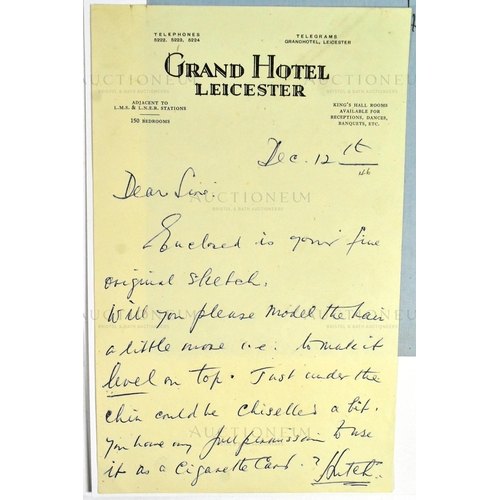 TELEPHONES
5222, 5223, 5224
TELEGRAMS
GRANDHOTEL, LEICESTER
GRAND HOTEL
LEICESTER
ADJACENT TO
L.M.S. & L.N.E.R. STATIONS
150 BEDROOMS
KING'S HALL ROOMS
AVAILABLE FOR
RECEPTIONS, DANCES,
BANQUETS, ETC.
Dec. 12th
46
Dear Sire.
Enclosed is your fine
original sketch.
Will you please model the hair
a little more i.e. to make it
level on top. Just under the
chin could be chiselled a bit.
You have my full permission to use
it as a Cigarette Card. ? Hutch.
AUCTIONEUM
BRISTOL & BATH AUCTIONEERS